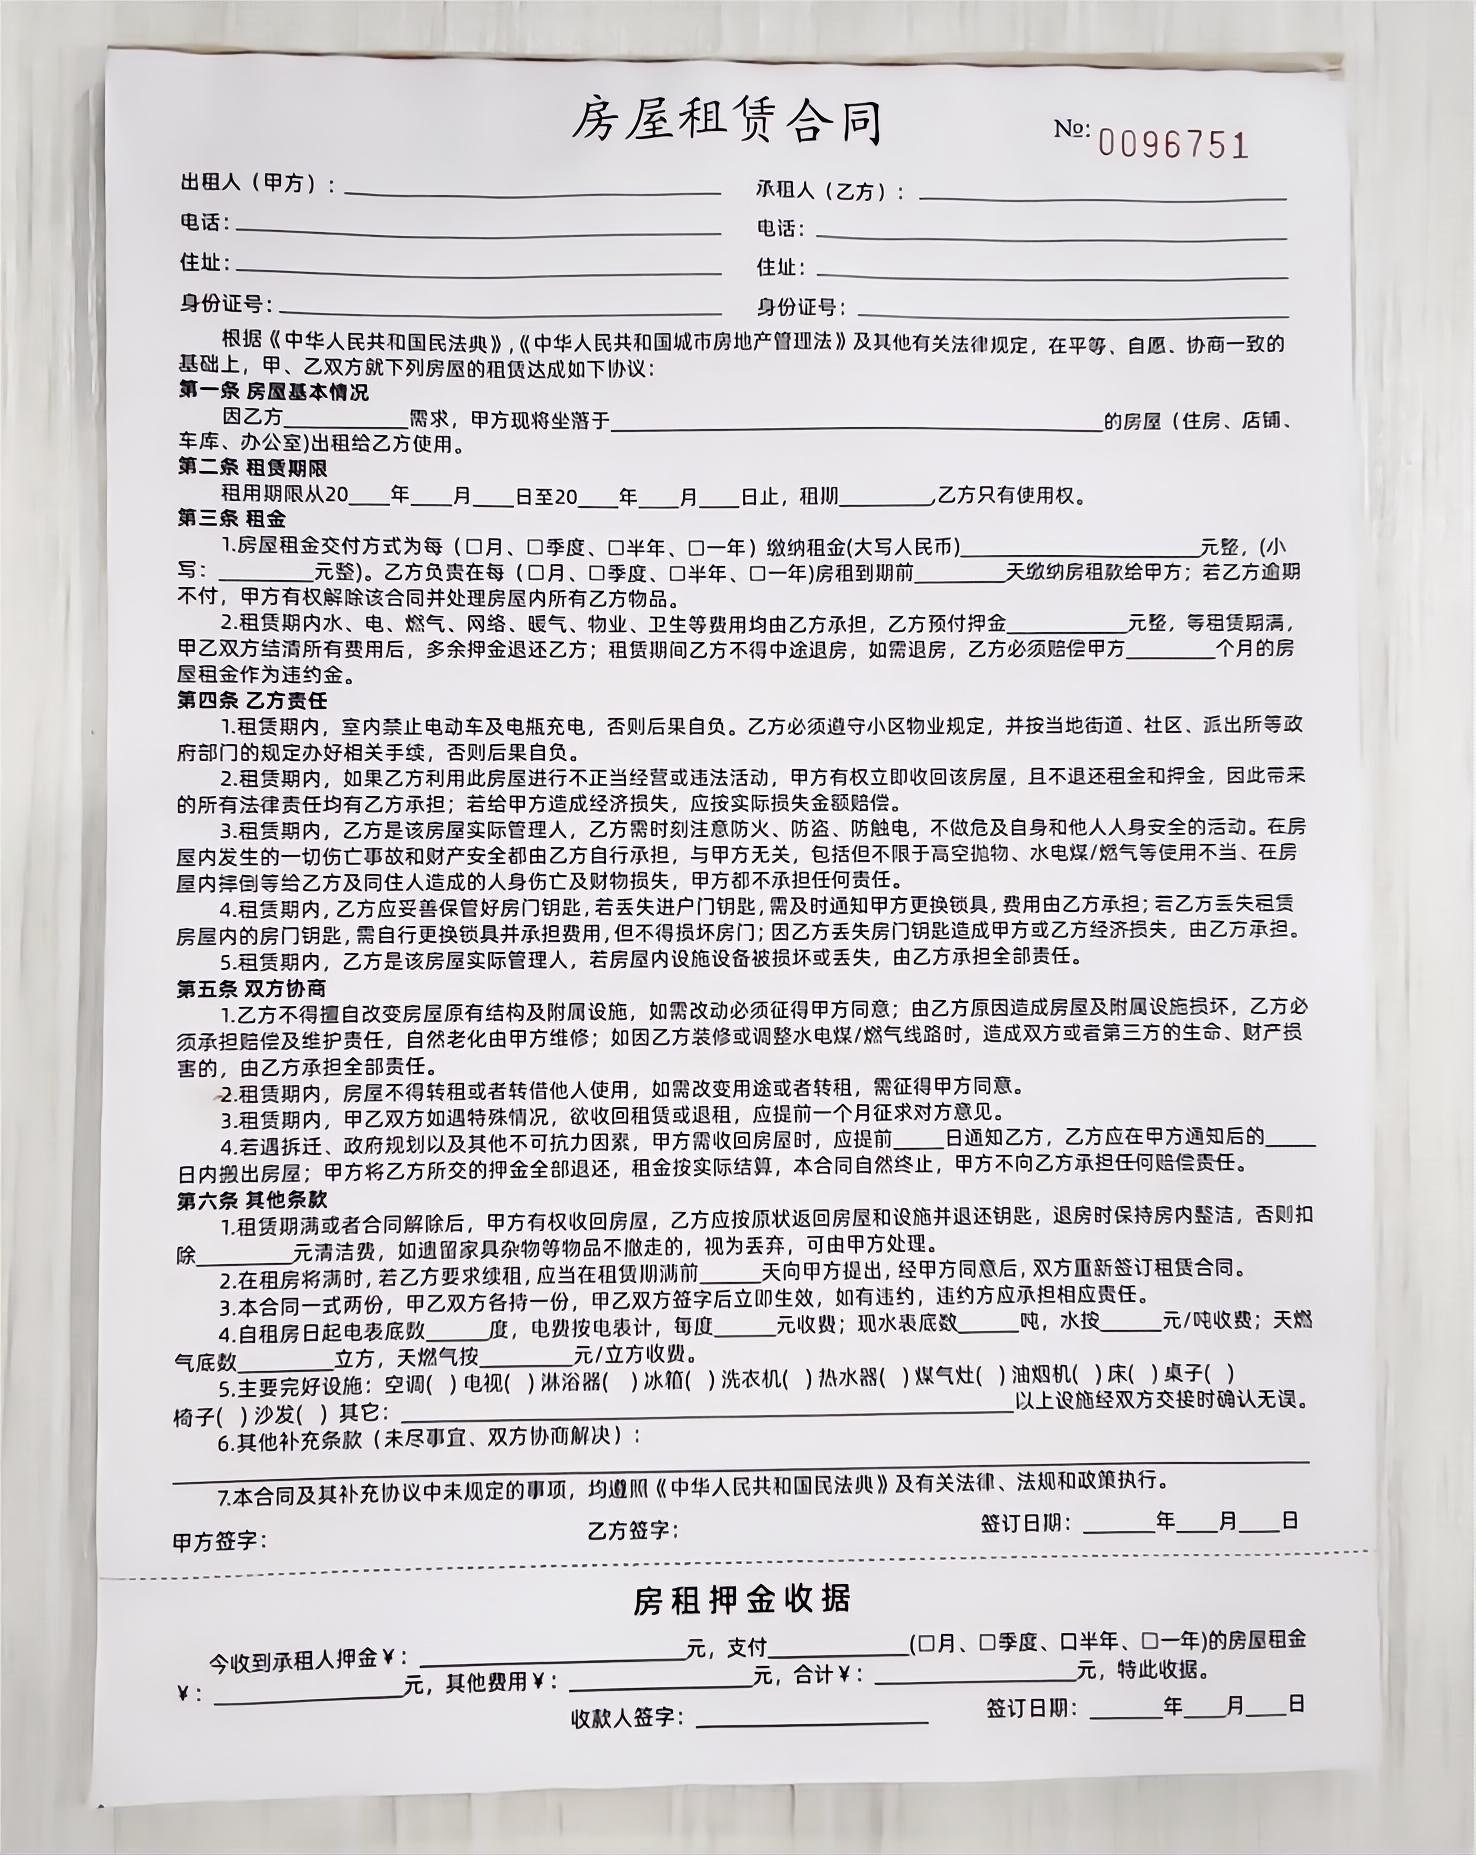 房屋租赁合同
№: 0096751
出租人（甲方）：____ 承租人（乙方）：____
电话：____ 电话：____
住址：____ 住址：____
身份证号：____ 身份证号：____
根据《中华人民共和国民法典》,《中华人民共和国城市房地产管理法》及其他有关法律规定，在平等、自愿、协商一致的
基础上，甲、乙双方就下列房屋的租赁达成如下协议：
第一条 房屋基本情况
因乙方____需求，甲方现将坐落于____的房屋（住房、店铺、
车库、办公室)出租给乙方使用。
第二条 租赁期限
租用期限从20____年____月____日至20____年____月____日止，租期____,乙方只有使用权。
第三条 租金
1.房屋租金交付方式为每（□月、□季度、□半年、□一年）缴纳租金(大写人民币)____元整，(小
写：____元整)。乙方负责在每（□月、□季度、□半年、□一年)房租到期前____天缴纳房租款给甲方；若乙方逾期
不付，甲方有权解除该合同并处理房屋内所有乙方物品。
2.租赁期内水、电、燃气、网络、暖气、物业、卫生等费用均由乙方承担，乙方预付押金____元整，等租赁期满，
甲乙双方结清所有费用后，多余押金退还乙方；租赁期间乙方不得中途退房，如需退房，乙方必须赔偿甲方____个月的房
屋租金作为违约金。
第四条 乙方责任
1.租赁期内，室内禁止电动车及电瓶充电，否则后果自负。乙方必须遵守小区物业规定，并按当地街道、社区、派出所等政
府部门的规定办好相关手续，否则后果自负。
2.租赁期内，如果乙方利用此房屋进行不正当经营或违法活动，甲方有权立即收回该房屋，且不退还租金和押金，因此带来
的所有法律责任均有乙方承担；若给甲方造成经济损失，应按实际损失金额赔偿。
3.租赁期内，乙方是该房屋实际管理人，乙方需时刻注意防火、防盗、防触电，不做危及自身和他人人身安全的活动。在房
屋内发生的一切伤亡事故和财产安全都由乙方自行承担，与甲方无关，包括但不限于高空抛物、水电煤/燃气等使用不当、在房
屋内摔倒等给乙方及同住人造成的人身伤亡及财物损失，甲方都不承担任何责任。
4.租赁期内，乙方应妥善保管好房门钥匙，若丢失进户门钥匙，需及时通知甲方更换锁具，费用由乙方承担；若乙方丢失租赁
房屋内的房门钥匙，需自行更换锁具并承担费用，但不得损坏房门；因乙方丢失房门钥匙造成甲方或乙方经济损失，由乙方承担。
5.租赁期内，乙方是该房屋实际管理人，若房屋内设施设备被损坏或丢失，由乙方承担全部责任。
第五条 双方协商
1.乙方不得擅自改变房屋原有结构及附属设施，如需改动必须征得甲方同意；由乙方原因造成房屋及附属设施损坏，乙方必
须承担赔偿及维护责任，自然老化由甲方维修；如因乙方装修或调整水电煤/燃气线路时，造成双方或者第三方的生命、财产损
害的，由乙方承担全部责任。
2.租赁期内，房屋不得转租或者转借他人使用，如需改变用途或者转租，需征得甲方同意。
3.租赁期内，甲乙双方如遇特殊情况，欲收回租赁或退租，应提前一个月征求对方意见。
4.若遇拆迁、政府规划以及其他不可抗力因素，甲方需收回房屋时，应提前____日通知乙方，乙方应在甲方通知后的____
日内搬出房屋；甲方将乙方所交的押金全部退还，租金按实际结算，本合同自然终止，甲方不向乙方承担任何赔偿责任。
第六条 其他条款
1.租赁期满或者合同解除后，甲方有权收回房屋，乙方应按原状返回房屋和设施并退还钥匙，退房时保持房内整洁，否则扣
除____元清洁费，如遗留家具杂物等物品不撤走的，视为丢弃，可由甲方处理。
2.在租房将满时，若乙方要求续租，应当在租赁期满前____天向甲方提出，经甲方同意后，双方重新签订租赁合同。
3.本合同一式两份，甲乙双方各持一份，甲乙双方签字后立即生效，如有违约，违约方应承担相应责任。
4.自租房日起电表底数____度，电费按电表计，每度____元收费；现水表底数____吨，水按____元/吨收费；天燃
气底数____立方，天燃气按____元/立方收费。
5.主要完好设施：空调( ) 电视( ) 淋浴器( ) 冰箱( ) 洗衣机( ) 热水器( ) 煤气灶( ) 油烟机( ) 床( ) 桌子( )
椅子( ) 沙发( ) 其它：____以上设施经双方交接时确认无误。
6.其他补充条款（未尽事宜、双方协商解决）：
7.本合同及其补充协议中未规定的事项，均遵照《中华人民共和国民法典》及有关法律、法规和政策执行。
甲方签字： 乙方签字： 签订日期：____年____月____日
房租押金收据
今收到承租人押金¥：____元，支付____(□月、□季度、□半年、□一年)的房屋租金
¥：____元，其他费用¥：____元，合计¥：____元，特此收据。
收款人签字：____ 签订日期：____年____月____日